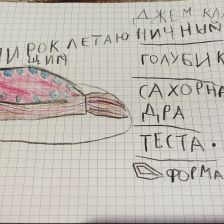 ПИРОК ЛЕТАЮ
ЩИЙ
ДЖЕМ КЛ
НИЧНЫЙ
ГОЛУБИК
САХОРНА
ДРА
ТЕСТА.
ФОРМА